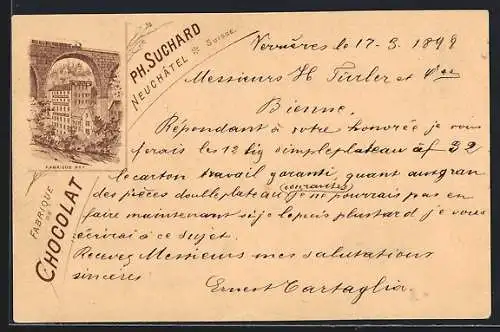 PH. SUCHARD
NEUCHÂTEL * SUISSE.
FABRIQUE DE
CHOCOLAT
Verrières le 17-3. 1899
Messieurs H Türler et
Bienne.
Répondant à votre honorée je vous
ferais les 12 lig simple plateau à f 32
le carton travail garanti, quant aux gran
des pièces double plateau (courantes) je ne pourrais pas en
faire maintenant si je le puis plus tard je vous
écrirai à ce sujet.
Recevez Messieurs mes salutations
sincères
Ernest Cartaglia.